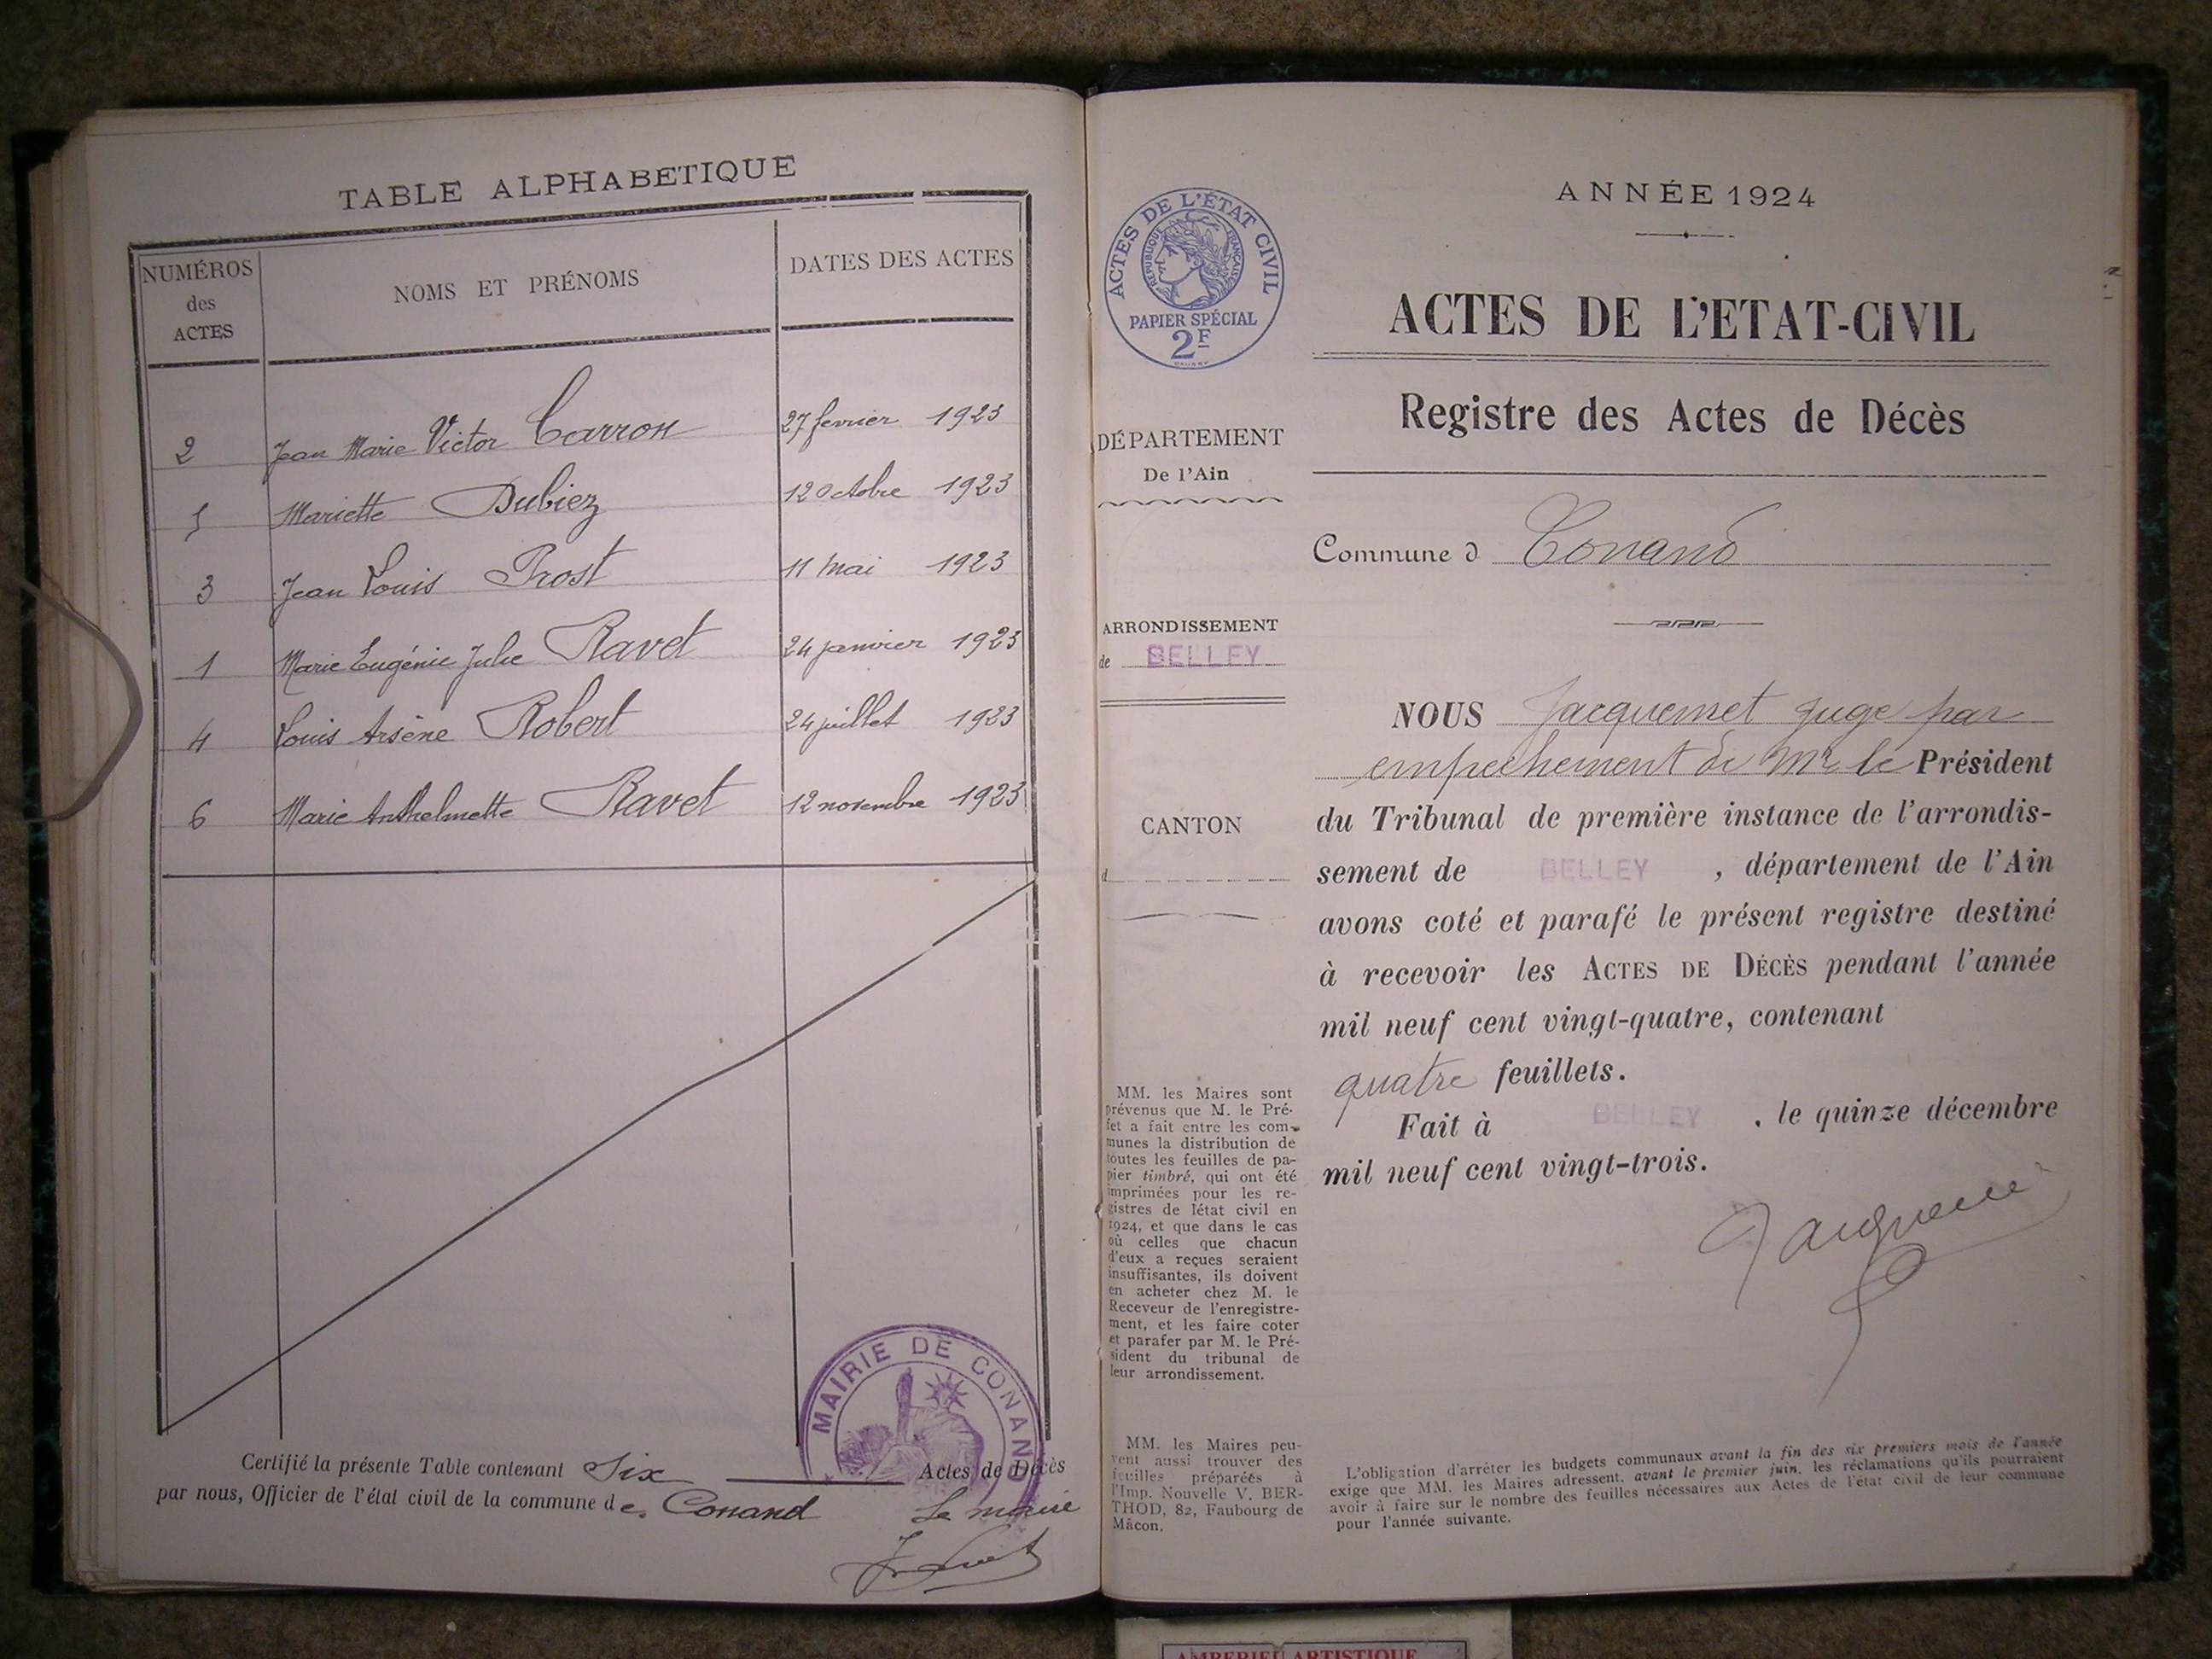 TABLE ALPHABETIQUE
NUMÉROS
des
ACTES
NOMS ET PRÉNOMS
DATES DES ACTES
2 Jean Marie Victor Carron 27 fevrier 1923
5 Mariette Dubiez 12 Octobre 1923
3 Jean Louis Prost 11 Mai 1923
1 Marie Eugénie Julie Ravet 24 janvier 1923
4 Louis Arsène Robert 24 juillet 1923
6 Marie Anthelmette Ravet 12 novembre 1923
MAIRIE DE CONAND
Certifié la présente Table contenant Six Actes de Décès
par nous, Officier de l'état civil de la commune de Conand Le maire
ACTES DE L'ÉTAT CIVIL
RÉPUBLIQUE FRANÇAISE
PAPIER SPÉCIAL
2F
DÉPARTEMENT
De l'Ain
ARRONDISSEMENT
de BELLEY
CANTON
d
MM. les Maires sont
prévenus que M. le Pré-
fet a fait entre les com-
munes la distribution de
toutes les feuilles de pa-
pier timbré, qui ont été
imprimées pour les re-
gistres de l'état civil en
1924, et que dans le cas
où celles que chacun
d'eux a reçues seraient
insuffisantes, ils doivent
en acheter chez M. le
Receveur de l'enregistre-
ment, et les faire coter
et parafer par M. le Pré-
sident du tribunal de
leur arrondissement.
MM. les Maires peu-
vent aussi trouver des
feuilles préparées à
l'Imp. Nouvelle V. BER-
THOD, 82, Faubourg de
Mâcon.
ANNÉE 1924
ACTES DE L'ETAT-CIVIL
Registre des Actes de Décès
Commune d Conand
NOUS Jacquemet juge par
empechement de Mr le Président
du Tribunal de première instance de l'arrondis-
sement de BELLEY , département de l'Ain
avons coté et parafé le présent registre destiné
à recevoir les ACTES DE DÉCÈS pendant l'année
mil neuf cent vingt-quatre, contenant
quatre feuillets.
Fait à BELLEY , le quinze décembre
mil neuf cent vingt-trois.
Jacquemet
L'obligation d'arrêter les budgets communaux avant la fin des six premiers mois de l'année
exige que MM. les Maires adressent, avant le premier juin, les réclamations qu'ils pourraient
avoir à faire sur le nombre des feuilles nécessaires aux Actes de l'état civil de leur commune
pour l'année suivante.
AMBERIEU ARTISTIQUE